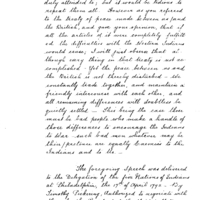 duly attended to; but it would be tedious to
repeat them all. However as you referred
to the Treaty of peace made between us and
the British, and gave your opinion, that if
all the articles of it were completely fulfill
ed the difficulties with the Western Indians
would cease; I will just observe that al
though every thing in that treaty is not ac
complished - Yet the peace between us and
the British is not thereby disturbed - We
constantly trade together, and maintain a
friendly intercourse with each other, and
all remaining differences will doubtless be
quietly settled - This being the case there
must be bad people who make a handle of
those differences to encourage the Indians
to War - such bad men whatever may be
their pretences are equally Enemies to the
Indians and to Us -
The foregoing Speech was delivered
to the Delegation of the five Nations of Indians
at Philadelphia, the 17th of April 1792 - By
Timothy Pickering, Authorized to negociate with